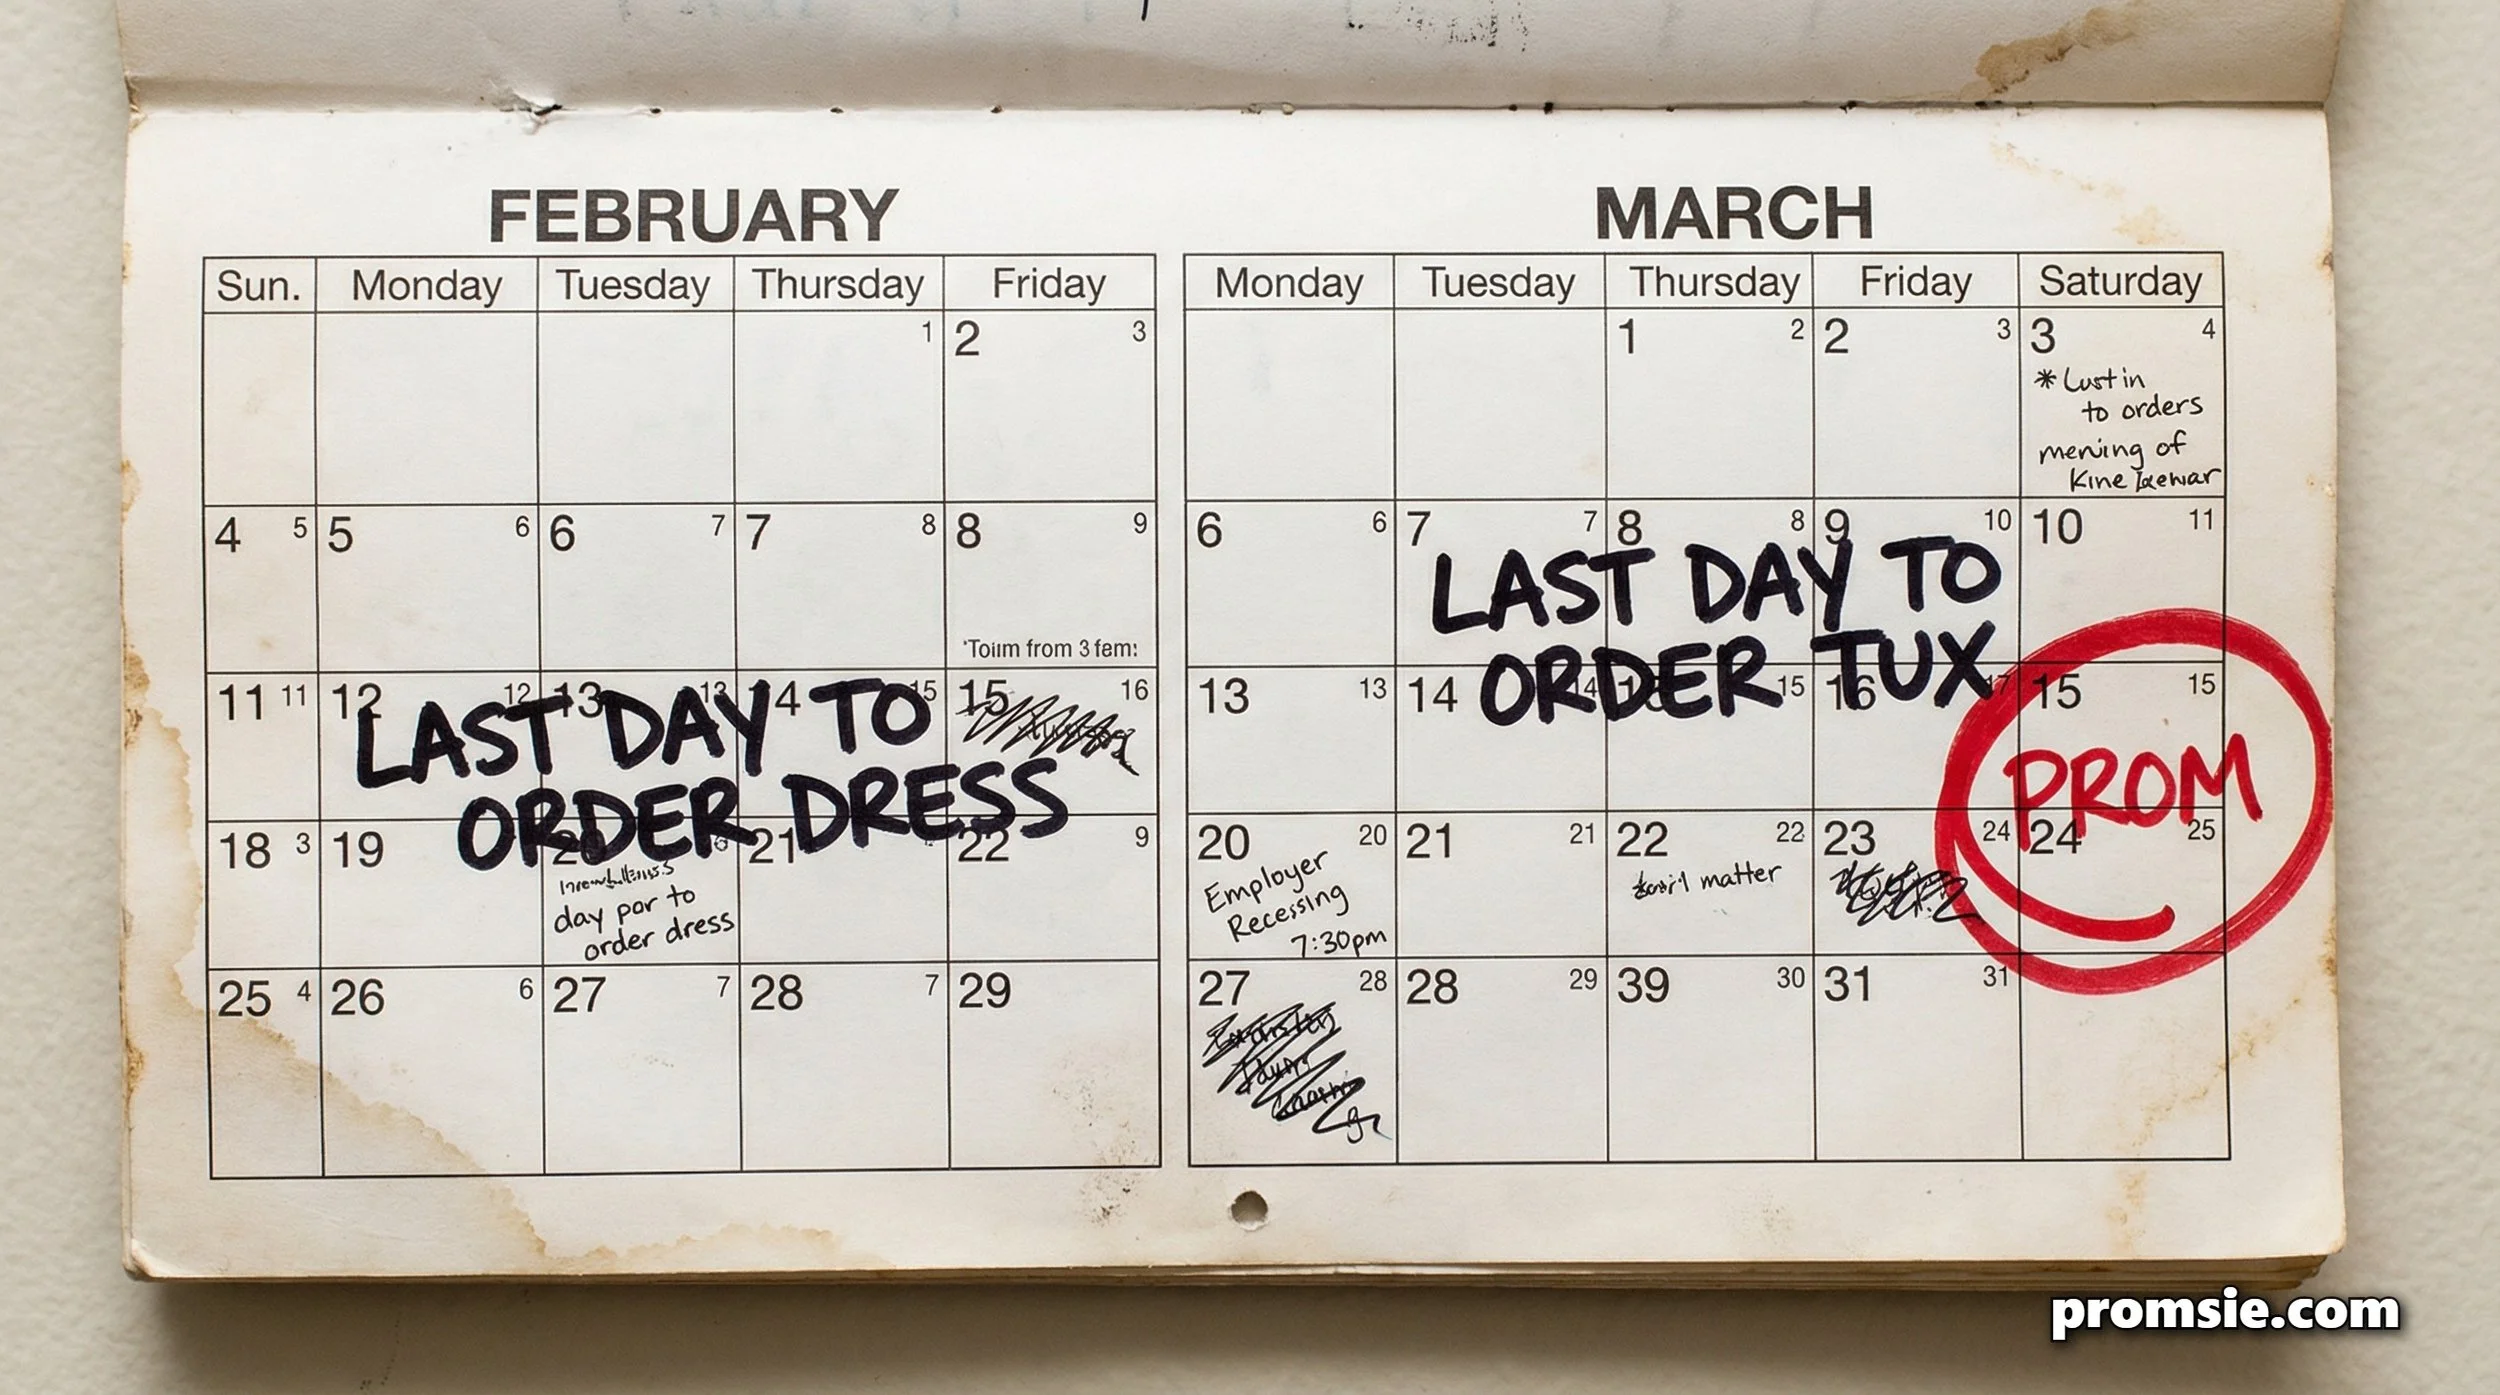 FEBRUARY
Sun. Monday Tuesday Thursday Friday
1 2 3
4 5 5 6 6 7 7 8 8 9
*Toiim from 3 fem:
11 11 12 12 13 13 14 15 15 16
LAST DAY TO
ORDER DRESS
18 3 19 20 21 22 9
day por to
order dress
25 4 26 6 27 7 28 7 29
MARCH
Monday Tuesday Thursday Friday Saturday
1 2 2 3 3 4
* Lustin
to orders
mening of
Kine
6 6 7 7 8 8 9 10 10 11
LAST DAY TO
ORDER TUX
13 13 14 14 15 16 17 15 15
PROM
20 20 21 21 22 22 23 24 24 25
Employer
Recessing
7:30pm
matter
27 28 28 29 39 30 31 31
promsie.com